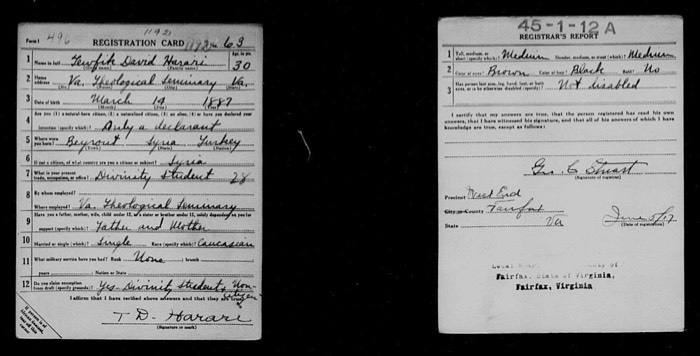 Form 1 496 REGISTRATION CARD No. 63
1 Name in full Tewfik David Harari Age, in yrs. 30
2 Home address Va. Theological Seminary Va.
3 Date of birth March 14 1887
4 Are you (1) a natural-born citizen, (2) a naturalized citizen, (3) an alien, (4) or have you declared your
intention (specify which)? Only a declarant
5 Where were you born? Beyrout Syria Turkey
6 If not a citizen, of what country are you a citizen or subject? Syria
7 What is your present trade, occupation, or office? Divinity Student 28
8 By whom employed?
Where employed? Va. Theological Seminary
9 Have you a father, mother, wife, child under 12, or a sister or brother under 12, solely dependent on you for
support (specify which)? Father and Mother
10 Married or single (which)? Single Race (specify which)? Caucasian
11 What military service have you had? Rank None branch
years Nation or State
12 Do you claim exemption from draft (specify grounds)? Yes- Divinity Student & Non-
citizen
I affirm that I have verified above answers and that they are true.
T D. Harari
(Signature or mark)
45-1-12 A
REGISTRAR'S REPORT
1 Tall, medium, or short (specify which)? Medium Slender, medium, or stout (which)? Medium
2 Color of eyes? Brown Color of hair? Black Bald? No
3 Has person lost arm, leg, hand, foot, or both eyes, or is he otherwise disabled (specify)? Not disabled
I certify that my answers are true, that the person registered has read his own
answers, that I have witnessed his signature, and that all of his answers of which I have
knowledge are true, except as follows:
Geo. C Stuart
(Signature of registrar)
Precinct West End
City or County Fairfax
State Va
June 5/17
(Date of registration)
Fairfax, State of Virginia,
Fairfax, Virginia